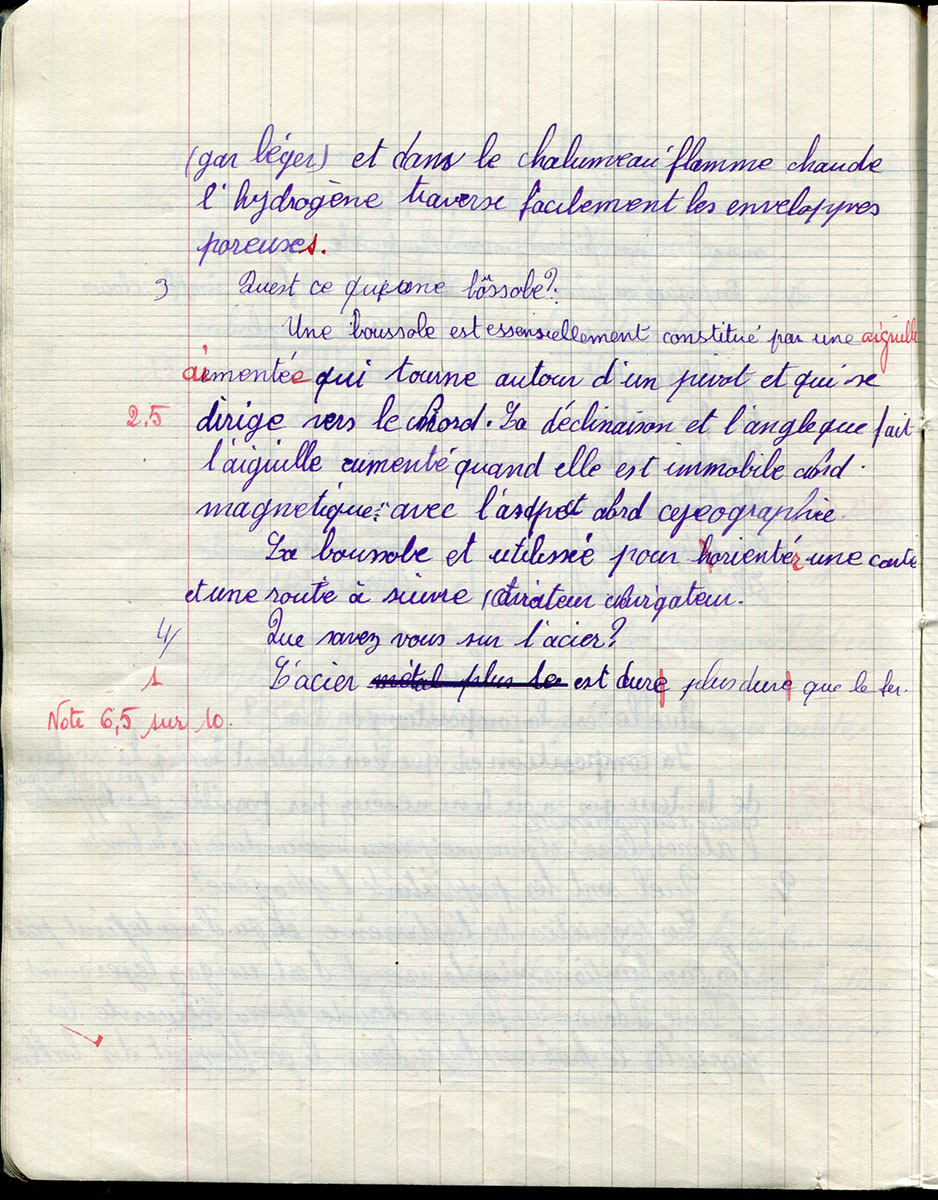 (gar léger) et dans le chalumeau flamme chaude
l'hydrogène traverse facilement les enveloppes
poreuses.
3 Quest ce qu'une bôssole?
Une boussole est essensiellement constitué par une aiguille
aimentée qui tourne autour d'un pivot et qui se
2.5 dirige vers le Nord. La déclinaison et l'angle que fait
l'aiguille aimenté quand elle est immobile
magnetique avec
La boussole et utilissée pour horientér une carte
et une route à suivre
4/ Que savez vous sur l'acier?
1 L'acier métal plus le est dure plus dure que le fer.
Note 6,5 sur 10.